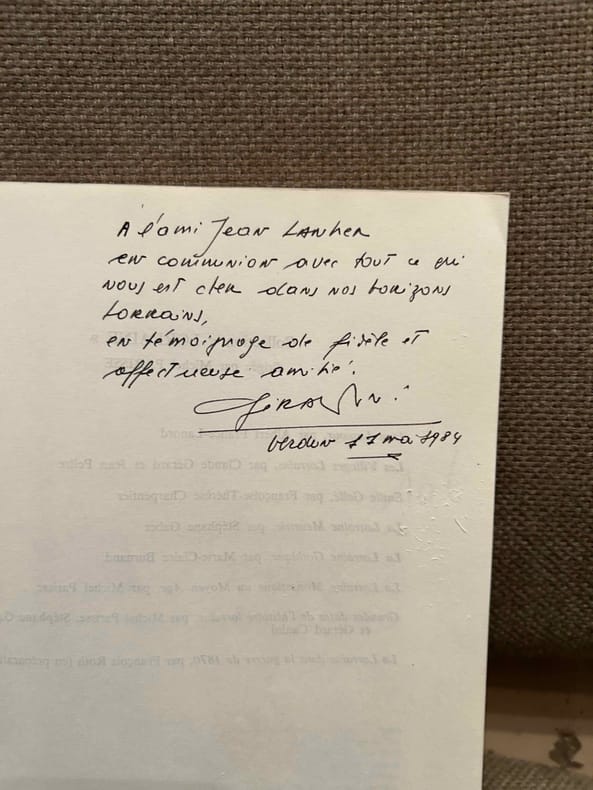 A l'ami Jean LANHER
en communion avec tout ce qui
nous est cher dans nos horizons
Lorrains,
en témoignage de fidèle et
affectueuse amitié.
Verdun 11 mai 1984
Les Villages Lorrains, par Claude Gérard et Jean Peltre
Emile Gallé, par Françoise-Thérèse Charpentier
La Lorraine par Stéphane Gaber
La Lorraine Gothique, par Marie-Claire Burnand
La Lorraine au Moyen Age, par Michel Parisse
Grandes dates de l'histoire lorraine, par Michel Parisse, Stéphane
et Gérard Canini
La Lorraine dans la guerre de 1870, par François Roth (en